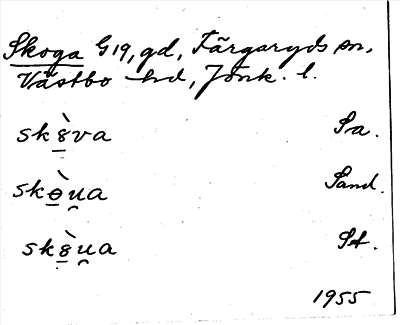 Skoga G19, gd, Färgaryds sn,
Västbo hd, Jönk. l.
skȣ̀va Sa.
skɵ̀u̯a Sand.
skȣ̀u̯a St.
1955